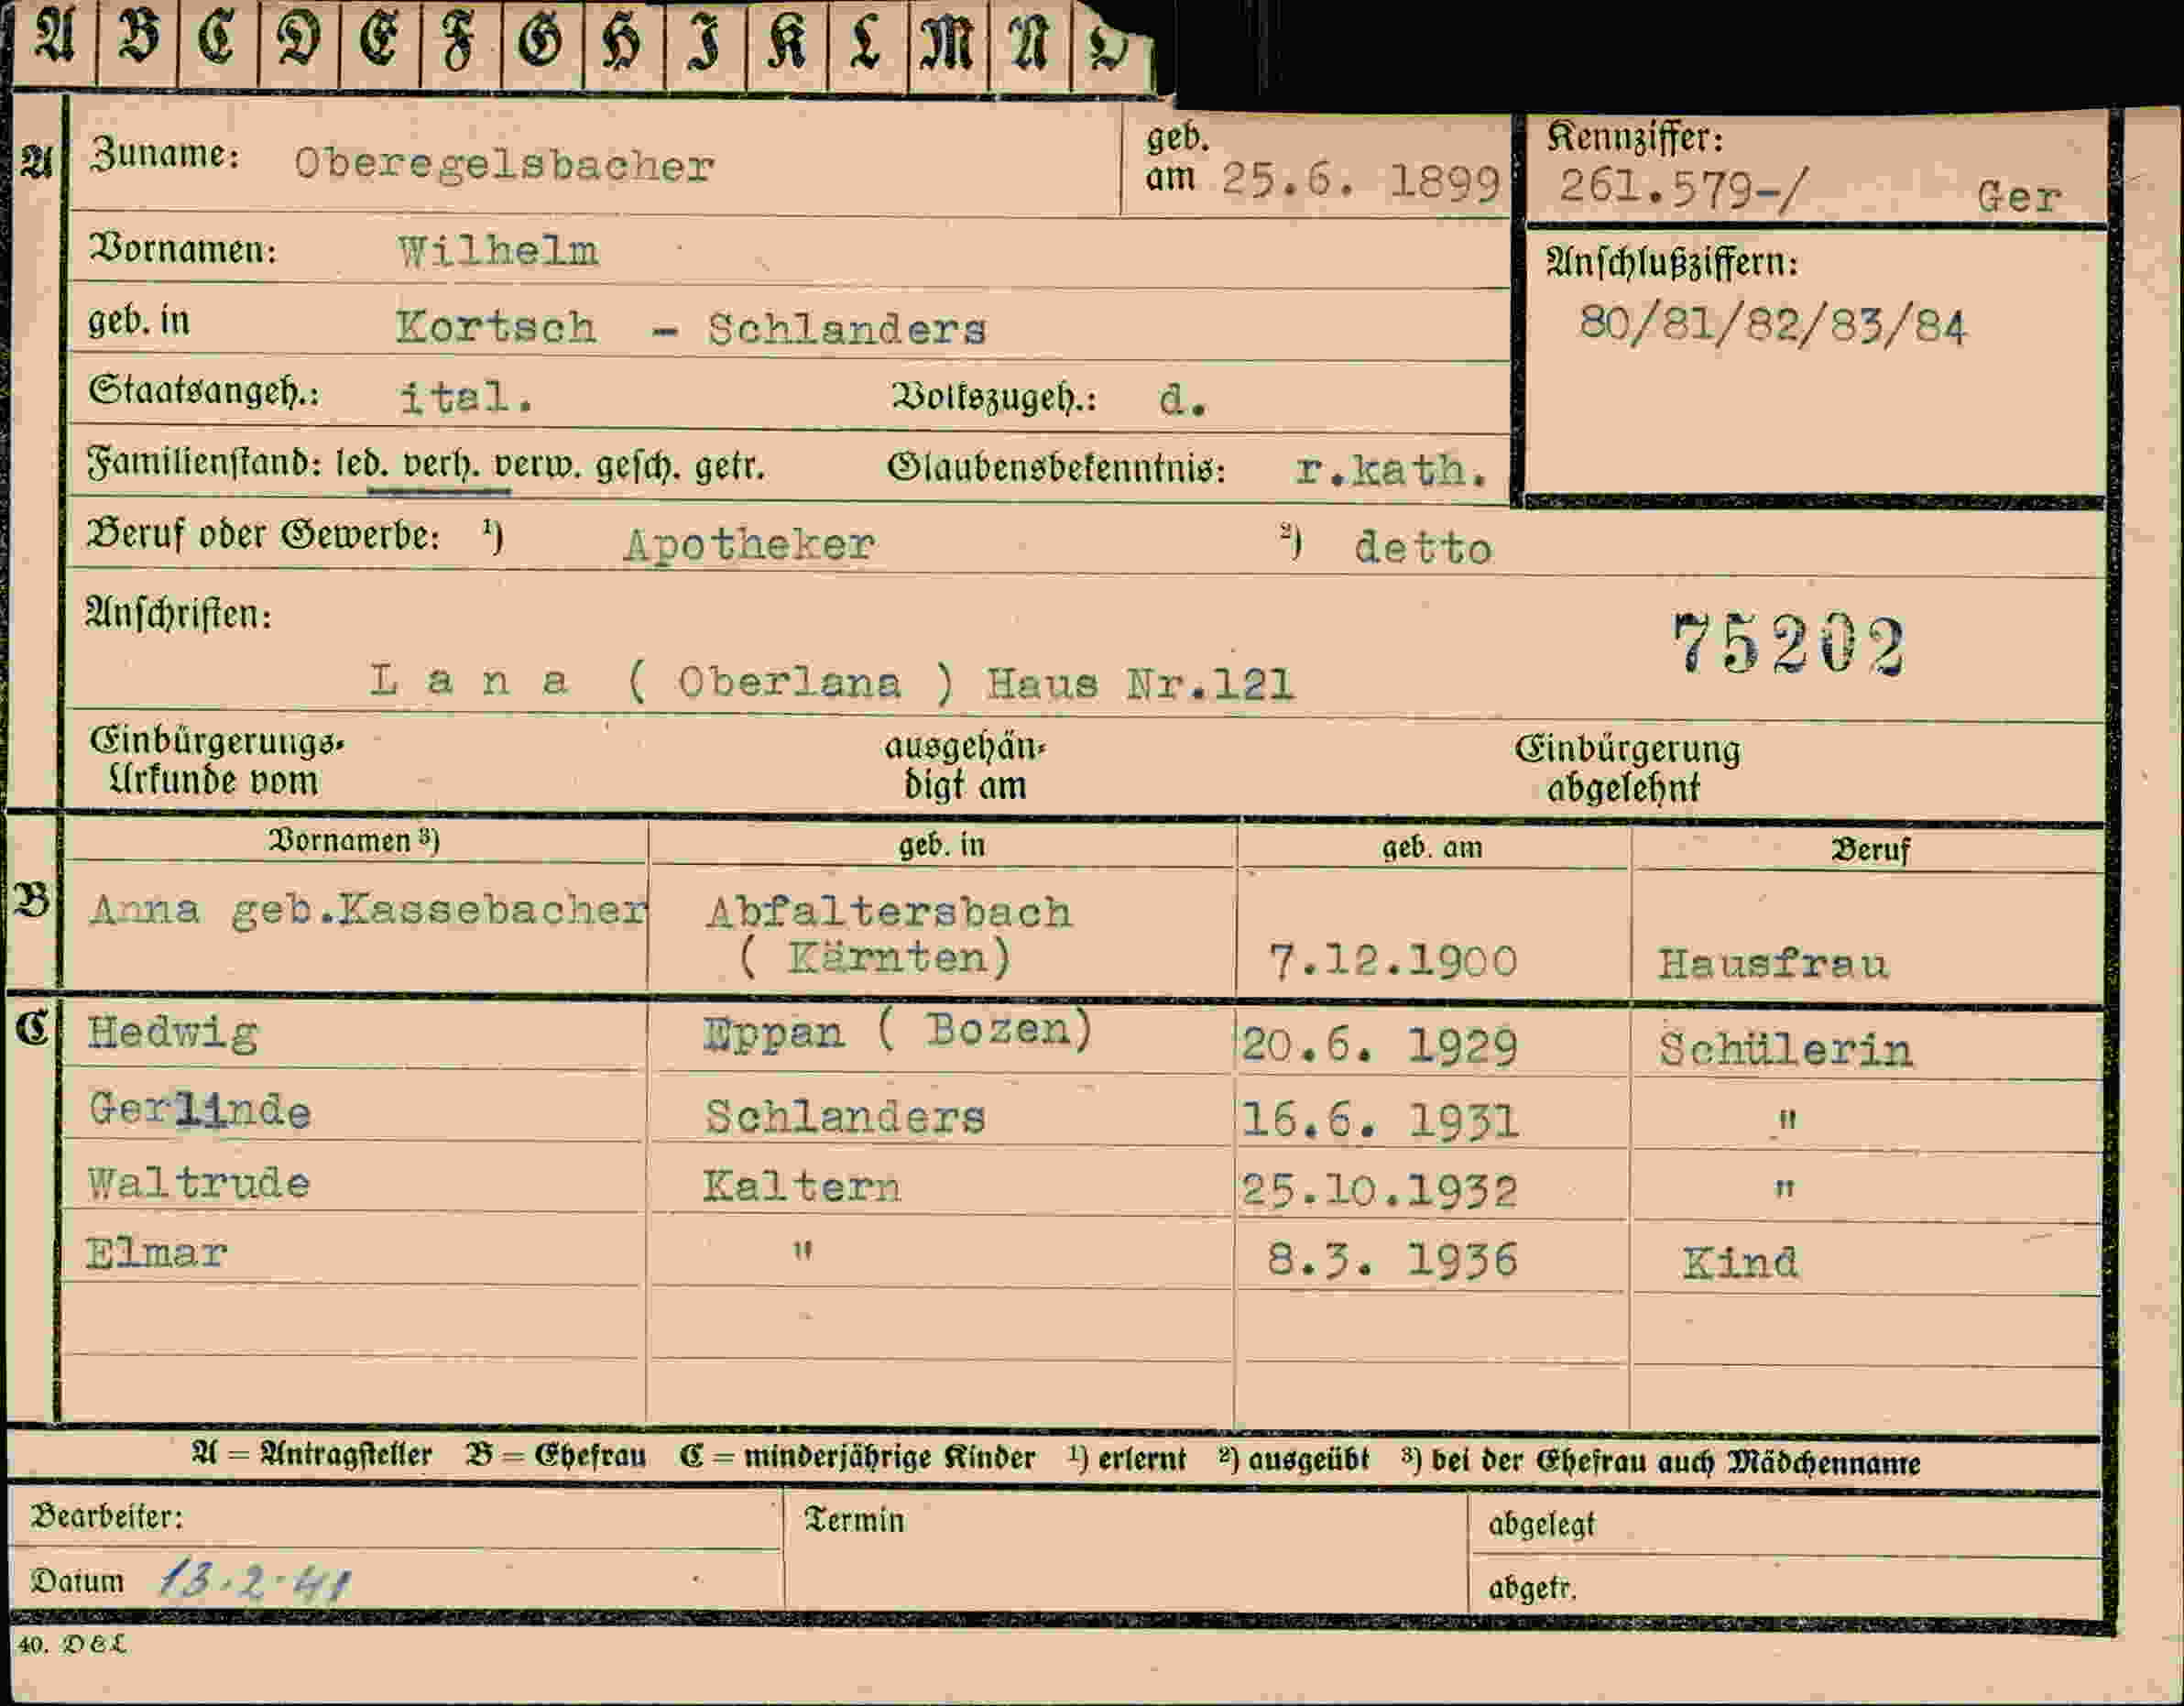 A B C D E F G H I K L M N O
A Zuname: Oberegelsbacher geb. am 25.6. 1899 Kennziffer: 261.579-/ Ger
Vornamen: Wilhelm Anschlußziffern:
geb. in Kortsch - Schlanders 80/81/82/83/84
Staatsangeh.: ital. Volkszugeh.: d.
Familienstand: led. verh. verw. gesch. getr. Glaubensbekenntnis: r.kath.
Beruf oder Gewerbe: 1) Apotheker 2) detto
Anschriften: 75202
L a n a ( Oberlana ) Haus Nr.121
Einbürgerungs- ausgehän- Einbürgerung
Urkunde vom digt am abgelehnt
Vornamen 3) geb. in geb. am Beruf
B Anna geb.Kassebacher Abfaltersbach
( Kärnten) 7.12.1900 Hausfrau
C Hedwig Eppan ( Bozen) 20.6. 1929 Schülerin
Gerlinde Schlanders 16.6. 1931 "
Waltrude Kaltern 25.10.1932 "
Elmar " 8.3. 1936 Kind
A = Antragsteller B = Ehefrau C = minderjährige Kinder 1) erlernt 2) ausgeübt 3) bei der Ehefrau auch Mädchenname
Bearbeiter: Termin abgelegt
Datum 13.2.41 abgetr.
40. D & L